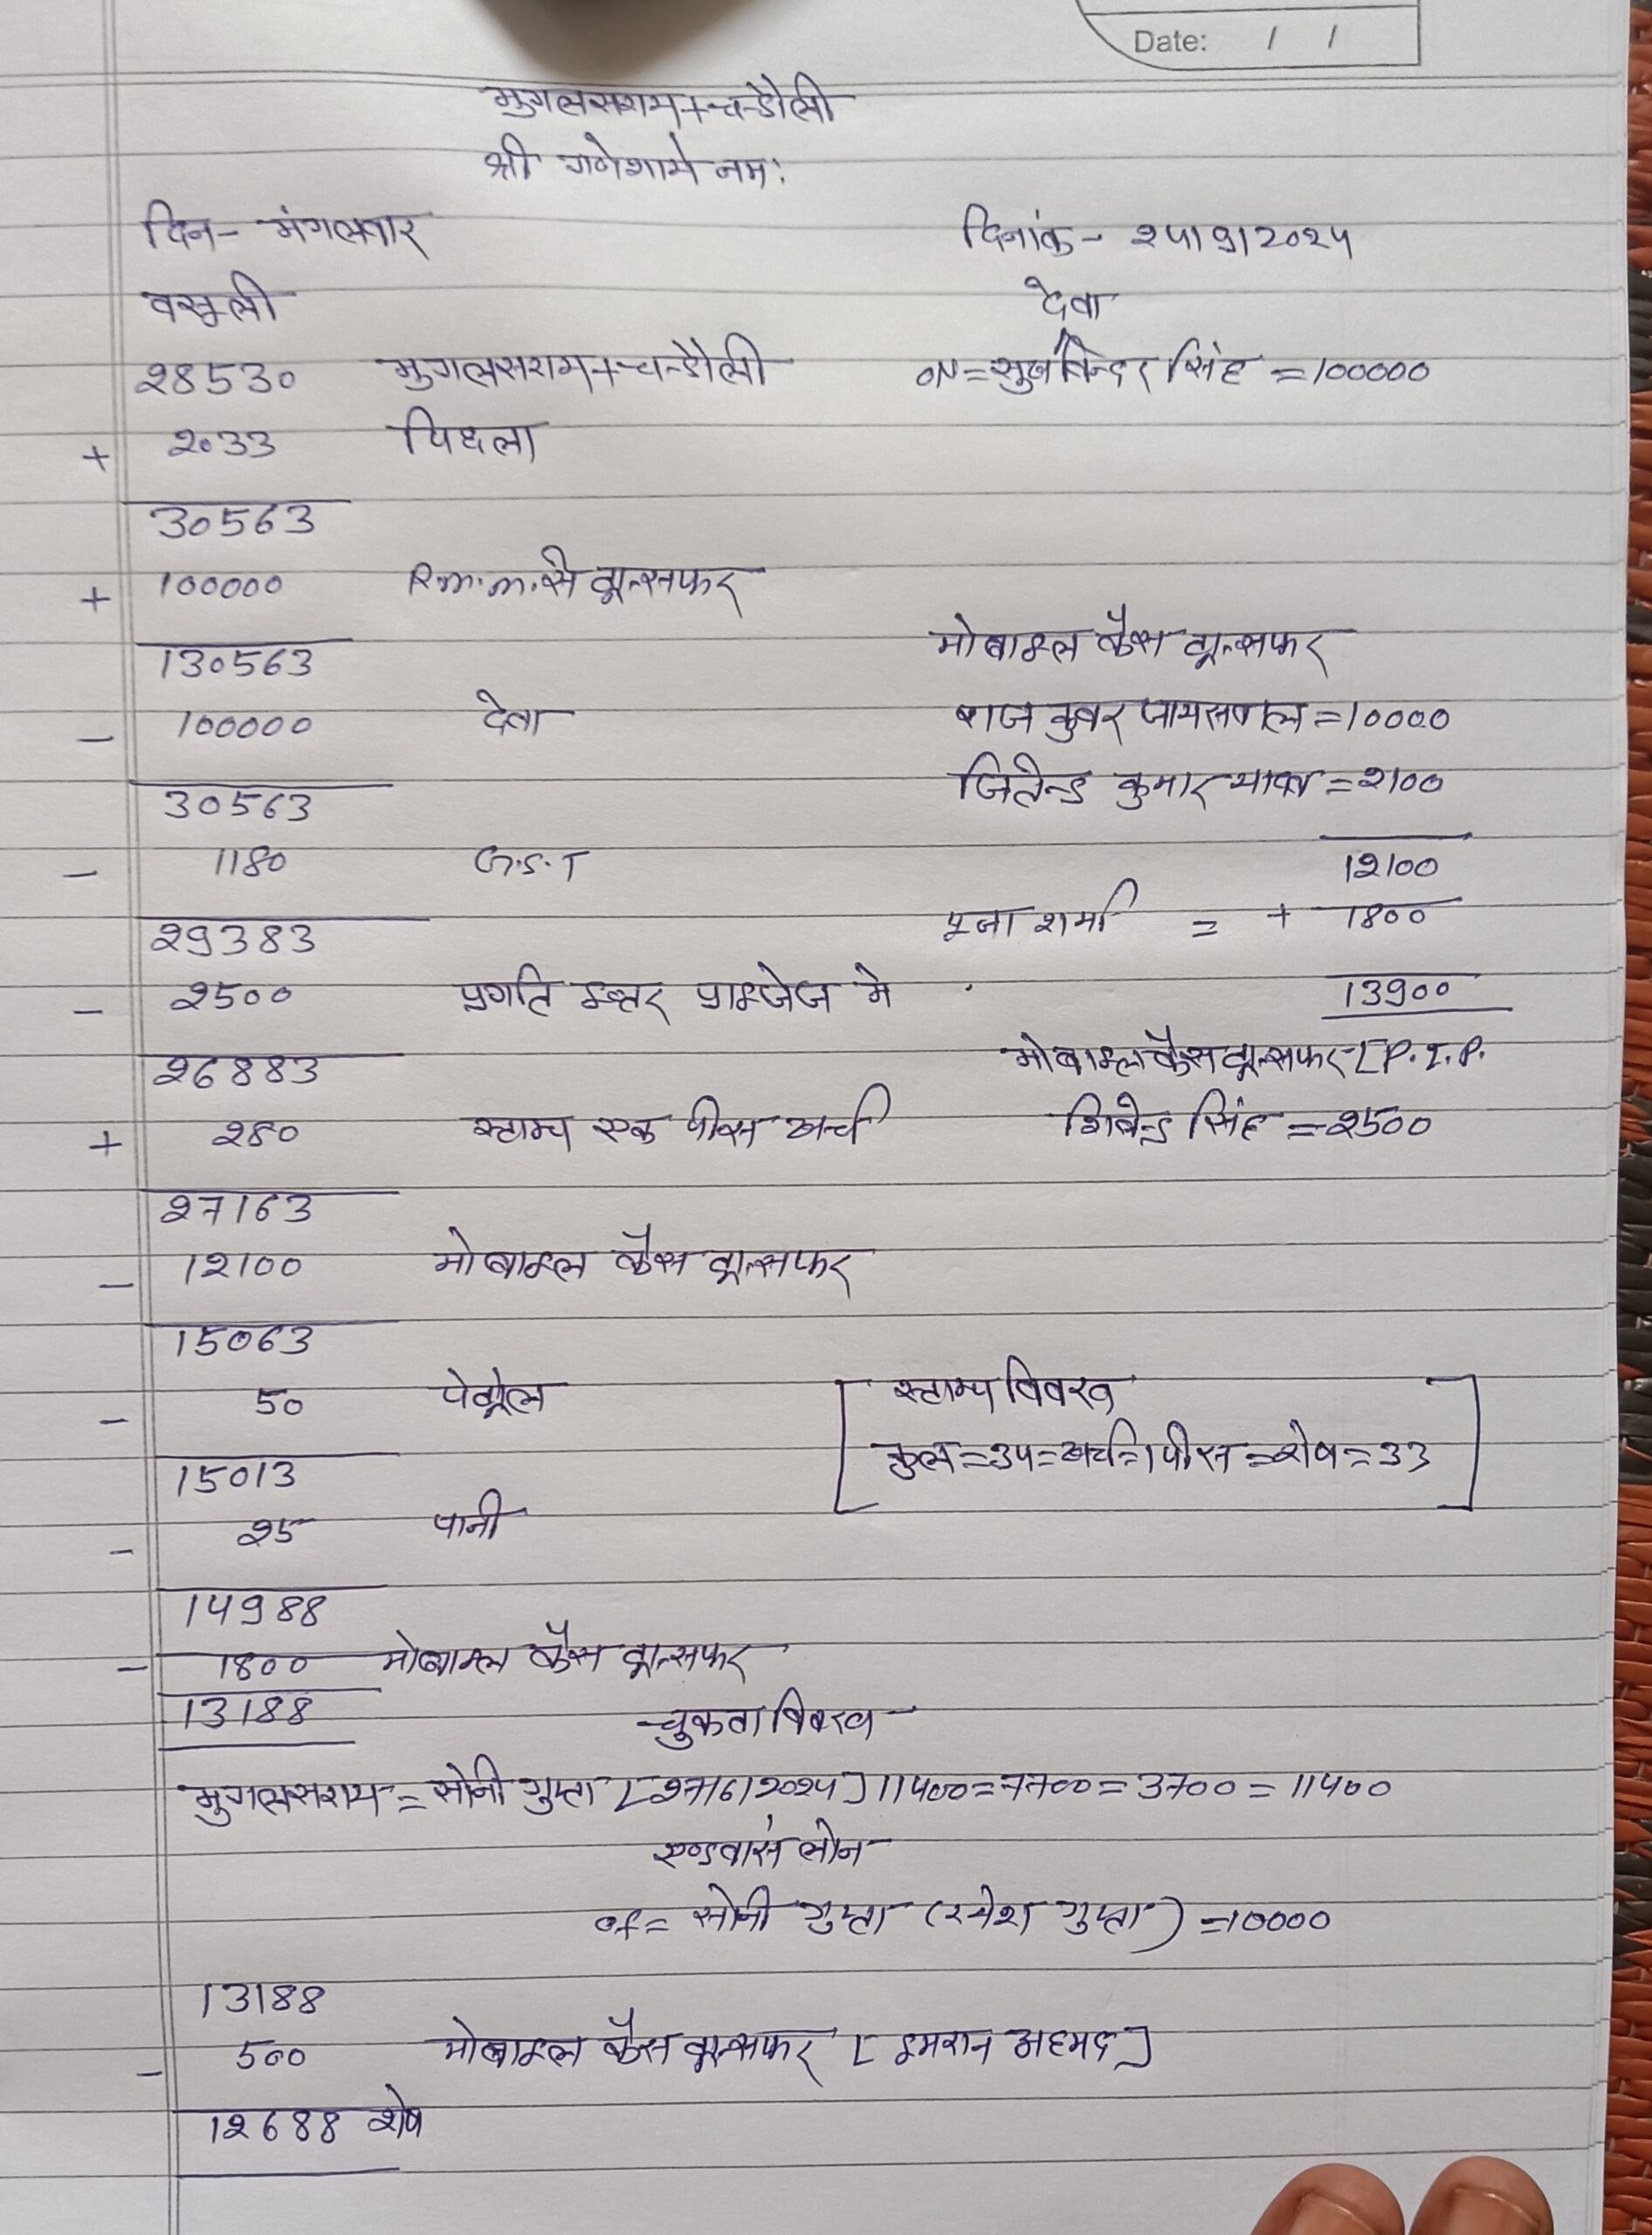 Date: / /
मुगलसराय+चन्डौली
श्री गणेशाये नमः
दिन- मंगलवार दिनांक- 24/9/2024
वसूली देवा
28530 मुगलसराय+चन्डौली ON=सुखविन्दर सिंह =100000
+ 2033 पिछला
30563
+ 100000 R.m.m. से ट्रान्सफर
130563 मोबाइल कैस ट्रान्सफर
- 100000 देवा राज कुवर जायसवाल =10000
30563 जितेन्द्र कुमार =2100
- 1180 G.S.T 12100
29383 पूजा शर्मा = + 1800
- 2500 प्रगति इन्टर प्राइजेज मे 13900
26883 मोबाइल कैस ट्रान्सफर-[P.I.P.
+ 280 स्टाम्प एक पीस खर्च शिवेन्द्र सिंह =2500
27163
- 12100 मोबाइल कैस ट्रान्सफर
15063
- 50 पेट्रोल स्टाम्प विवरण
15013 कुल=34=खर्च=1 पीस=शेष=33
- 25 पानी
14988
- 1800 मोबाइल कैस ट्रान्सफर
13188 चुकता विवरण
मुगलसराय= सोनी गुप्ता [27/6/2024] 11400=7700=3700=11400
एण्डवांस लोन
of= सोनी गुप्ता (रमेश गुप्ता) =10000
13188
- 500 मोबाइल कैस ट्रान्सफर [इमरान अहमद]
12688 शेष